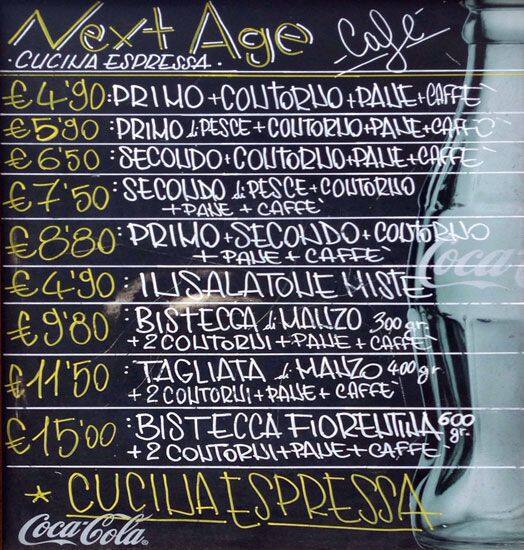 Next Age Café
· CUCINA ESPRESSA ·
€4'90: PRIMO + CONTORNO + PANE + CAFFÈ
€5'90: PRIMO di PESCE + CONTORNO + PANE + CAFFÈ
€6'50: SECONDO + CONTORNO + PANE + CAFFÈ
€7'50: SECONDO di PESCE + CONTORNO
+ PANE + CAFFÈ
€8'80: PRIMO + SECONDO + CONTORNO
+ PANE + CAFFÈ
€4'90: INSALATONE MISTE
€9'80: BISTECCA di MANZO 300 gr.
+ 2 CONTORNI + PANE + CAFFÈ
€11'50: TAGLIATA di MANZO 400 gr
+ 2 CONTORNI + PANE + CAFFÈ
€15'00: BISTECCA FIORENTINA 600 gr.
+ 2 CONTORNI + PANE + CAFFÈ
* CUCINA ESPRESSA
Coca-Cola
Coca-C